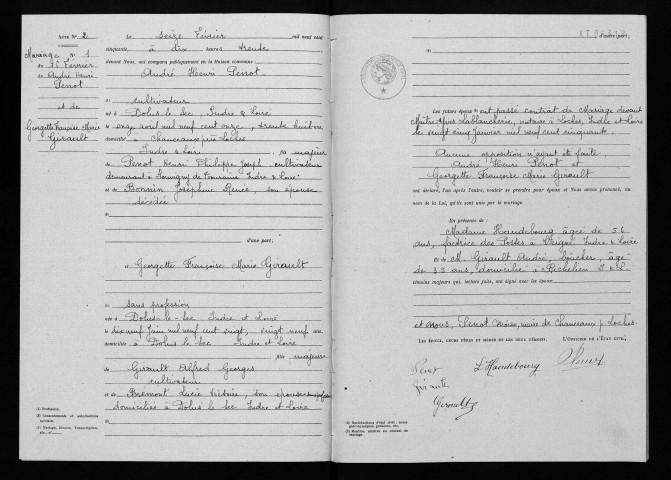 Acte N° 2
Mariage N° 1
du 16 Février
André Henri
Penot
et de
Georgette Françoise Marie
Girault
(1) Profession.
Le seize Février mil neuf cent
cinquante à dix heures trente
devant Nous, ont comparu publiquement en la Maison commune :
André Henri Penot
cultivateur
né à Dolus le Sec, Indre & Loire
le onze avril mil neuf cent onze, trente huit ans
domicilié à Chanceaux près Loches
Indre & Loire, fils majeur
de Penot Henri Philippe Joseph cultivateur
demeurant à Louvigny de Touraine Indre & Loire
et de Bonnin Joséphine Renée, son épouse
décédée
d'une part;
et Georgette Françoise Marie Girault
sans profession
née à Dolus-le-Sec Indre et Loire
le dix neuf Juin mil neuf cent vingt, vingt neuf ans
domiciliée à Dolus le Sec Indre et Loire
fille majeure
de Girault Alfred Georges
cultivateur
et de Bremont Lucie Victoire, son épouse
domiciliés à Dolus le Sec Indre et Loire
d'autre part;
Les futurs époux ont passé contrat de Mariage devant
Maître Yves Lablancherie, notaire à Loches, Indre et Loire
le vingt cinq Janvier mil neuf cent cinquante.
Aucune opposition n'ayant été faite,
André Henri Penot et
Georgette Françoise Marie Girault
ont déclaré, l'un après l'autre, vouloir se prendre pour époux et Nous avons prononcé, au
nom de la Loi, qu'ils sont unis par le mariage.
En présence de :
Madame Haudebourg âgée de 56
ans, factrice des Postes à Veigné Indre & Loire
Et de M. Girault André, boucher, âgé
de 33 ans, domicilié à Richelieu I & L
témoins majeurs qui, lecture faite, ont signé avec les époux
et Nous, Penot maire de Chanceaux p. Loches.
Les époux, leurs pères et mères et les deux témoins, L'Officier de l'État civil,
Penot L Haudebourg
Girault